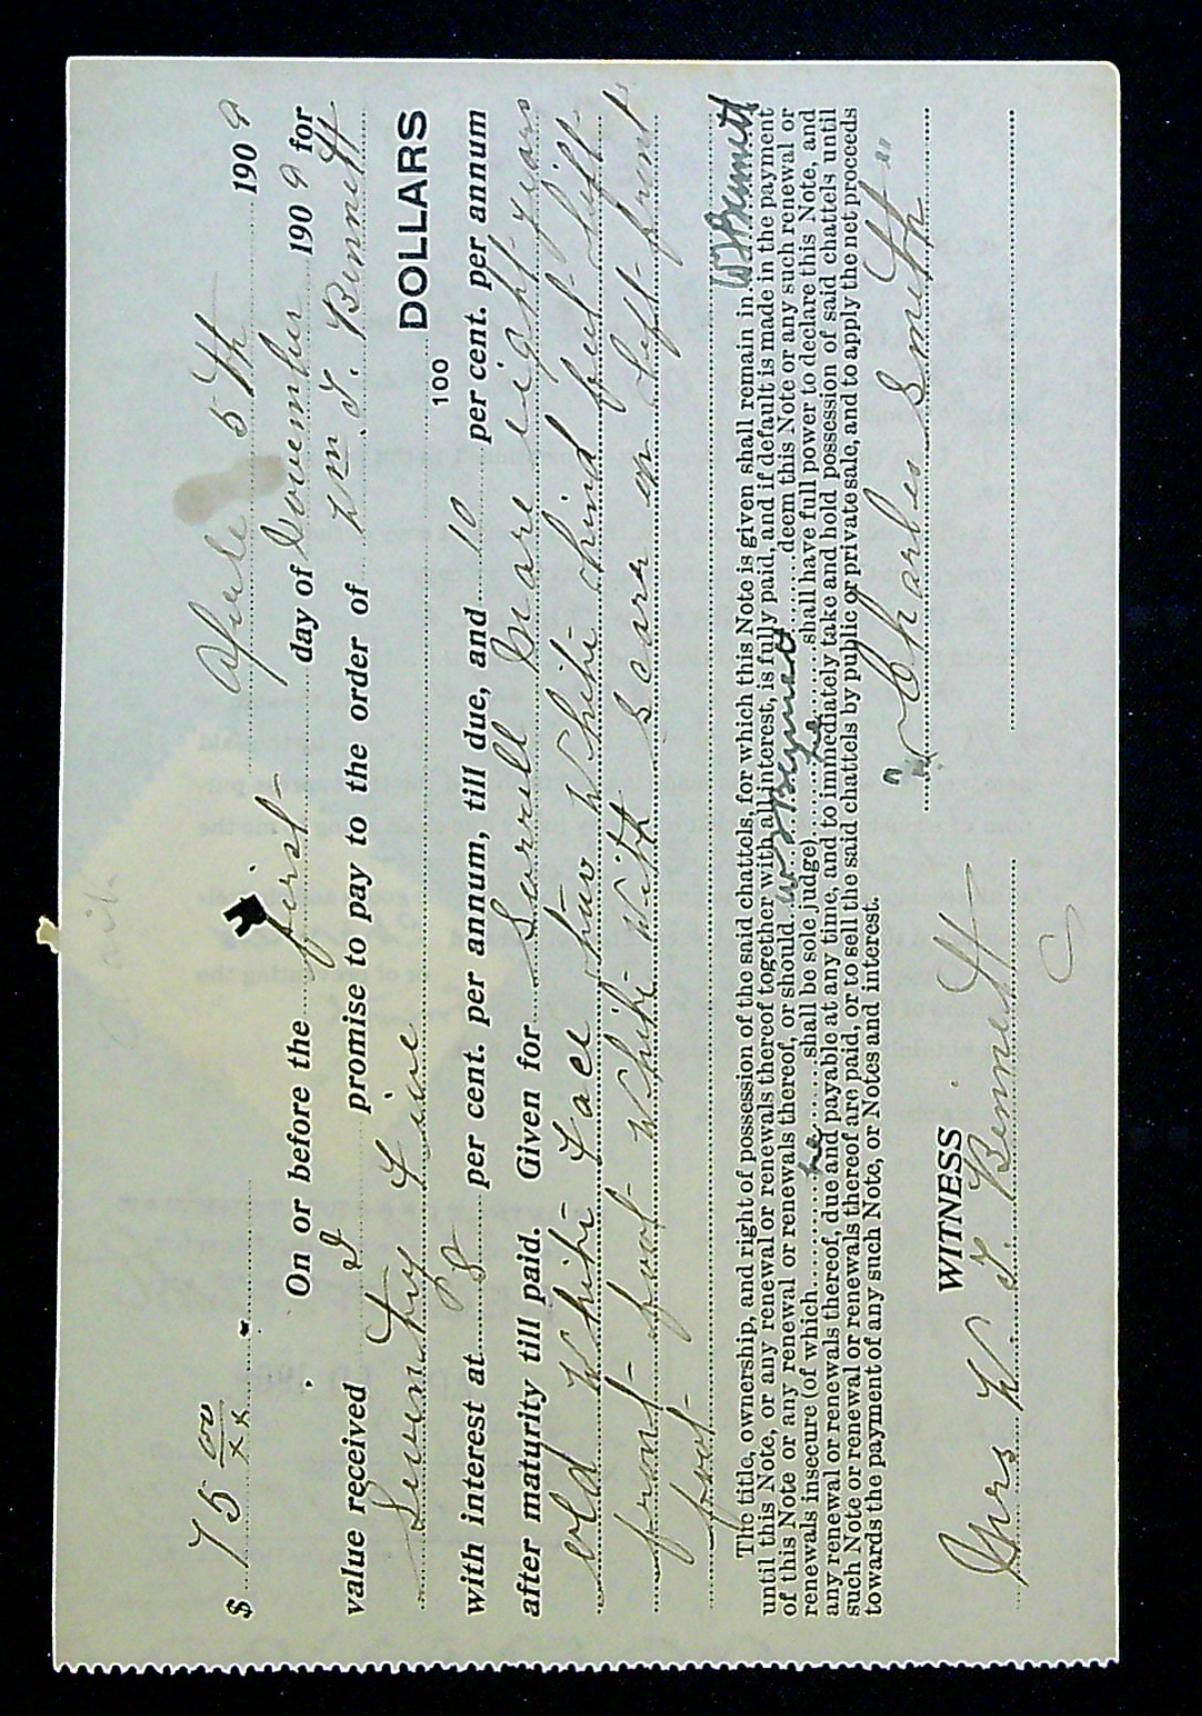 $ 75 00/xx Aprile 5th 1909
On or before the first day of November 1909 for
value received I promise to pay to the order of Wm T. Bennett
Seventy Five 100 DOLLARS
with interest at 8 per cent. per annum, till due, and 10 per cent. per annum
after maturity till paid. Given for Sorrell Mare eight years
old White Face two White hind feet left
front foot White With scare on left front
foot
The title, ownership, and right of possession of the said chattels, for which this Note is given shall remain in W T Bennett
until this Note, or any renewal or renewals thereof together with all interest, is fully paid, and if default is made in the payment
of this Note or any renewal or renewals thereof, or should W T Bennett deem this Note or any such renewal or
renewals insecure (of which he shall be sole judge) he shall have full power to declare this Note, and
any renewal or renewals thereof, due and payable at any time, and to immediately take and hold possession of said chattels until
such Note or renewal or renewals thereof are paid, or to sell the said chattels by public or private sale, and to apply the net proceeds
towards the payment of any such Note, or Notes and interest.
" Charles Smith "
WITNESS
Mrs W. T. Bennett